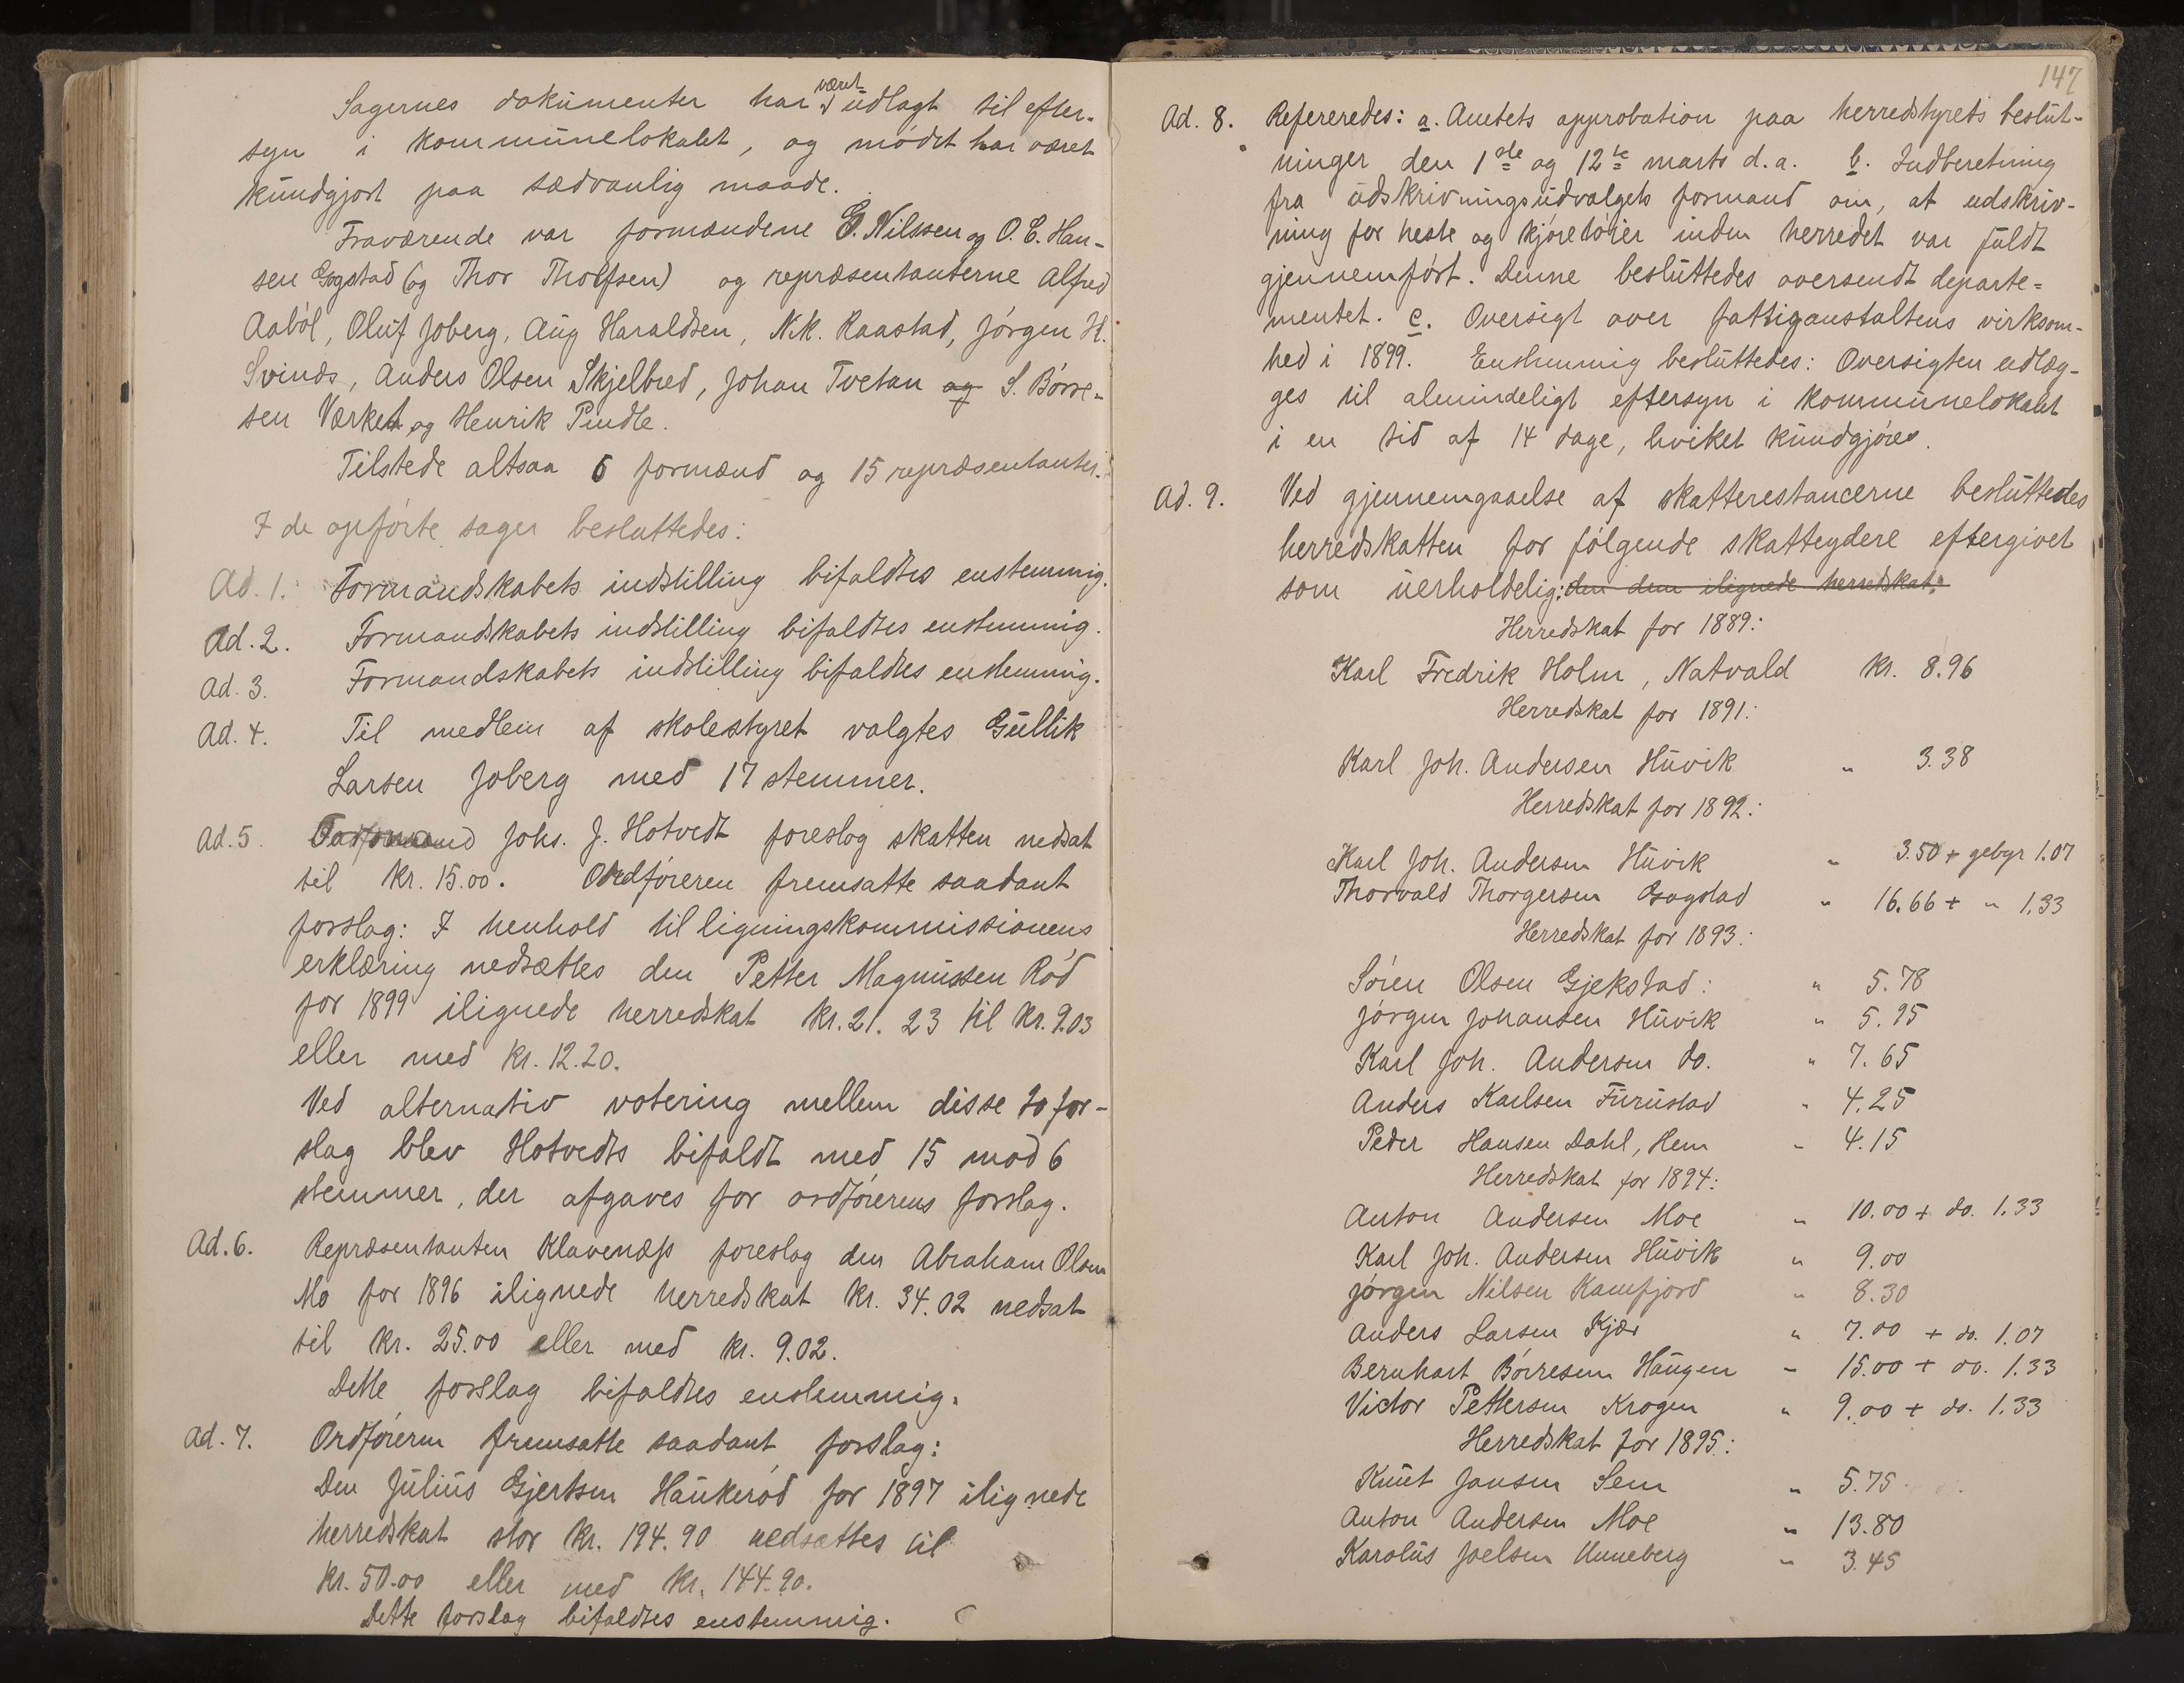 Sagernes dokumenter har været udlagt til efter-
syn i kommunelokalet, og mødet har været
kundgjort paa sædvanlig maade.
Fraværende var formændene G. Nilssen og O. E. Han-
sen Gogstad (og Thor Tholfsen) og repræsentanterne Alfred
Aabøl, Oluf Joberg, Aug Haraldsen, N.K. Raastad, Jørgen H.
Svinds, Anders Olsen Skjelbred, Johan Tvetan og S. Børre-
sen Værket og Henrik Pindle.
Tilstede altsaa 6 formænd og 15 repræsentanter.
I de opførte sager besluttedes:
Ad. 1. Formandskabets indstilling bifaldtes enstemmig.
Ad. 2. Formandskabets indstilling bifaldtes enstemmig.
Ad. 3. Formandskabets indstilling bifaldtes enstemmig.
Ad. 4. Til medlem af skolestyret valgtes Gullik
Larsen Joberg med 17 stemmer.
Ad. 5. Johs. J. Hotvedt foreslog skatten nedsat
til kr. 15.00. Ordføreren fremsatte saadant
forslag: I henhold til ligningskommissionens
erklæring nedsættes den Petter Magnussen Rød
for 1899 ilignede herredskat kr. 21.23 til kr. 9.03
eller med kr. 12.20.
Ved alternativ votering mellem disse to for-
slag blev Hotvedts bifaldt med 15 mod 6
stemmer, der afgaves for ordførerens forslag.
Ad. 6. Repræsentanten Klavenæss foreslog den Abraham Olsen
Mo for 1896 ilignede herredskat kr. 34.02 nedsat
til kr. 25.00 eller med kr. 9.02.
Dette forslag bifaldtes enstemmig.
Ad. 7. Ordføreren fremsatte saadant forslag:
Den Julius Gjertsen Haukerød for 1897 ilignede
herredskat stor kr. 194.90 nedsættes til
kr. 50.00 eller med kr. 144.90.
Dette forslag bifaldtes enstemmig.
147
Ad. 8. Refereredes: a. Amtets approbation paa herredstyrets beslut-
ninger den 1ste og 12te marts d.a. b. Indberetning
fra udskrivningsudvalgets formand om, at udskriv-
ning for heste og kjøretøier inden herredet var fuldt
gjennemført. Denne besluttedes oversendt departe-
mentet. c. Oversigt over fattiganstaltens virksom-
hed i 1899. Enstemmig besluttedes: Oversigten udlæg-
ges til almindeligt eftersyn i kommunelokalet
i en tid af 14 dage, hvilket kundgjøres.
Ad. 9. Ved gjennemgaaelse af skatterestancerne besluttedes
herredskatten for følgende skatteydere eftergivet
som uerholdelig: den dem ilignede herredskat:
Herredskat for 1889:
Karl Fredrik Holm, Natvald kr. 8.96
Herredskat for 1891:
Karl Joh. Andersen Huvik " 3.38
Herredskat for 1892:
Karl Joh. Andersen Huvik " 3.50 + gebyr 1.07
Thorvald Thorgersen Gogstad " 16.66 + " 1.33
Herredskat for 1893:
Søren Olsen Gjekstad: " 5.78
Jørgen Johansen Huvik " 5.95
Karl Joh. Andersen do. " 7.65
Anders Karlsen Furustad " 4.25
Peder Hansen Dahl, Hem " 4.15
Herredskat for 1894:
Anton Andersen Moe " 10.00 + do. 1.33
Karl Joh. Andersen Huvik " 9.00
Jørgen Nilsen Kamfjord " 8.30
Anders Larsen Kjær " 7.00 + do. 1.07
Bernhart Børresen Haugen " 15.00 + do. 1.33
Victor Pettersen Krogen " 9.00 + do. 1.33
Herredskat for 1895:
Knut Jansen Sem " 5.75
Anton Andersen Moe " 13.80
Karolus Joelsen Unneberg " 3.45